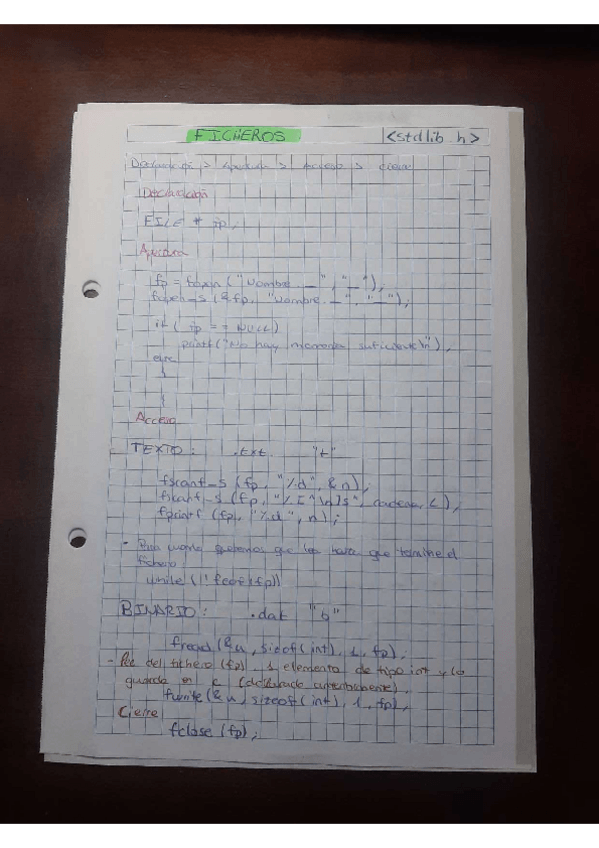 FICHEROS <stdlib.h>
Declaración > Apertura > Acceso > cierre
Declaración
FILE * fp;
Apertura
fp = fopen ("Nombre. __", "__");
fopen_s (&fp, "Nombre. __", "__");
if ( fp == NULL)
printf("No hay memoria suficiente\n");
else
{
}
Acceso
TEXTO: .txt "t"
fscanf_s (fp, "%d", &n);
fscanf_s (fp, "%[^\n]s", cadena, L);
fprintf (fp, "%d", n);
- queremos que lea hasta que termine el
fichero:
while (!feof(fp))
BINARIO: .dat "b"
fread (&n, sizeof(int), 1, fp);
- del fichero (fp), 1 elemento de tipo int y lo
guarda en
fwrite (&n, sizeof(int), 1, fp);
Cierre
fclose (fp);